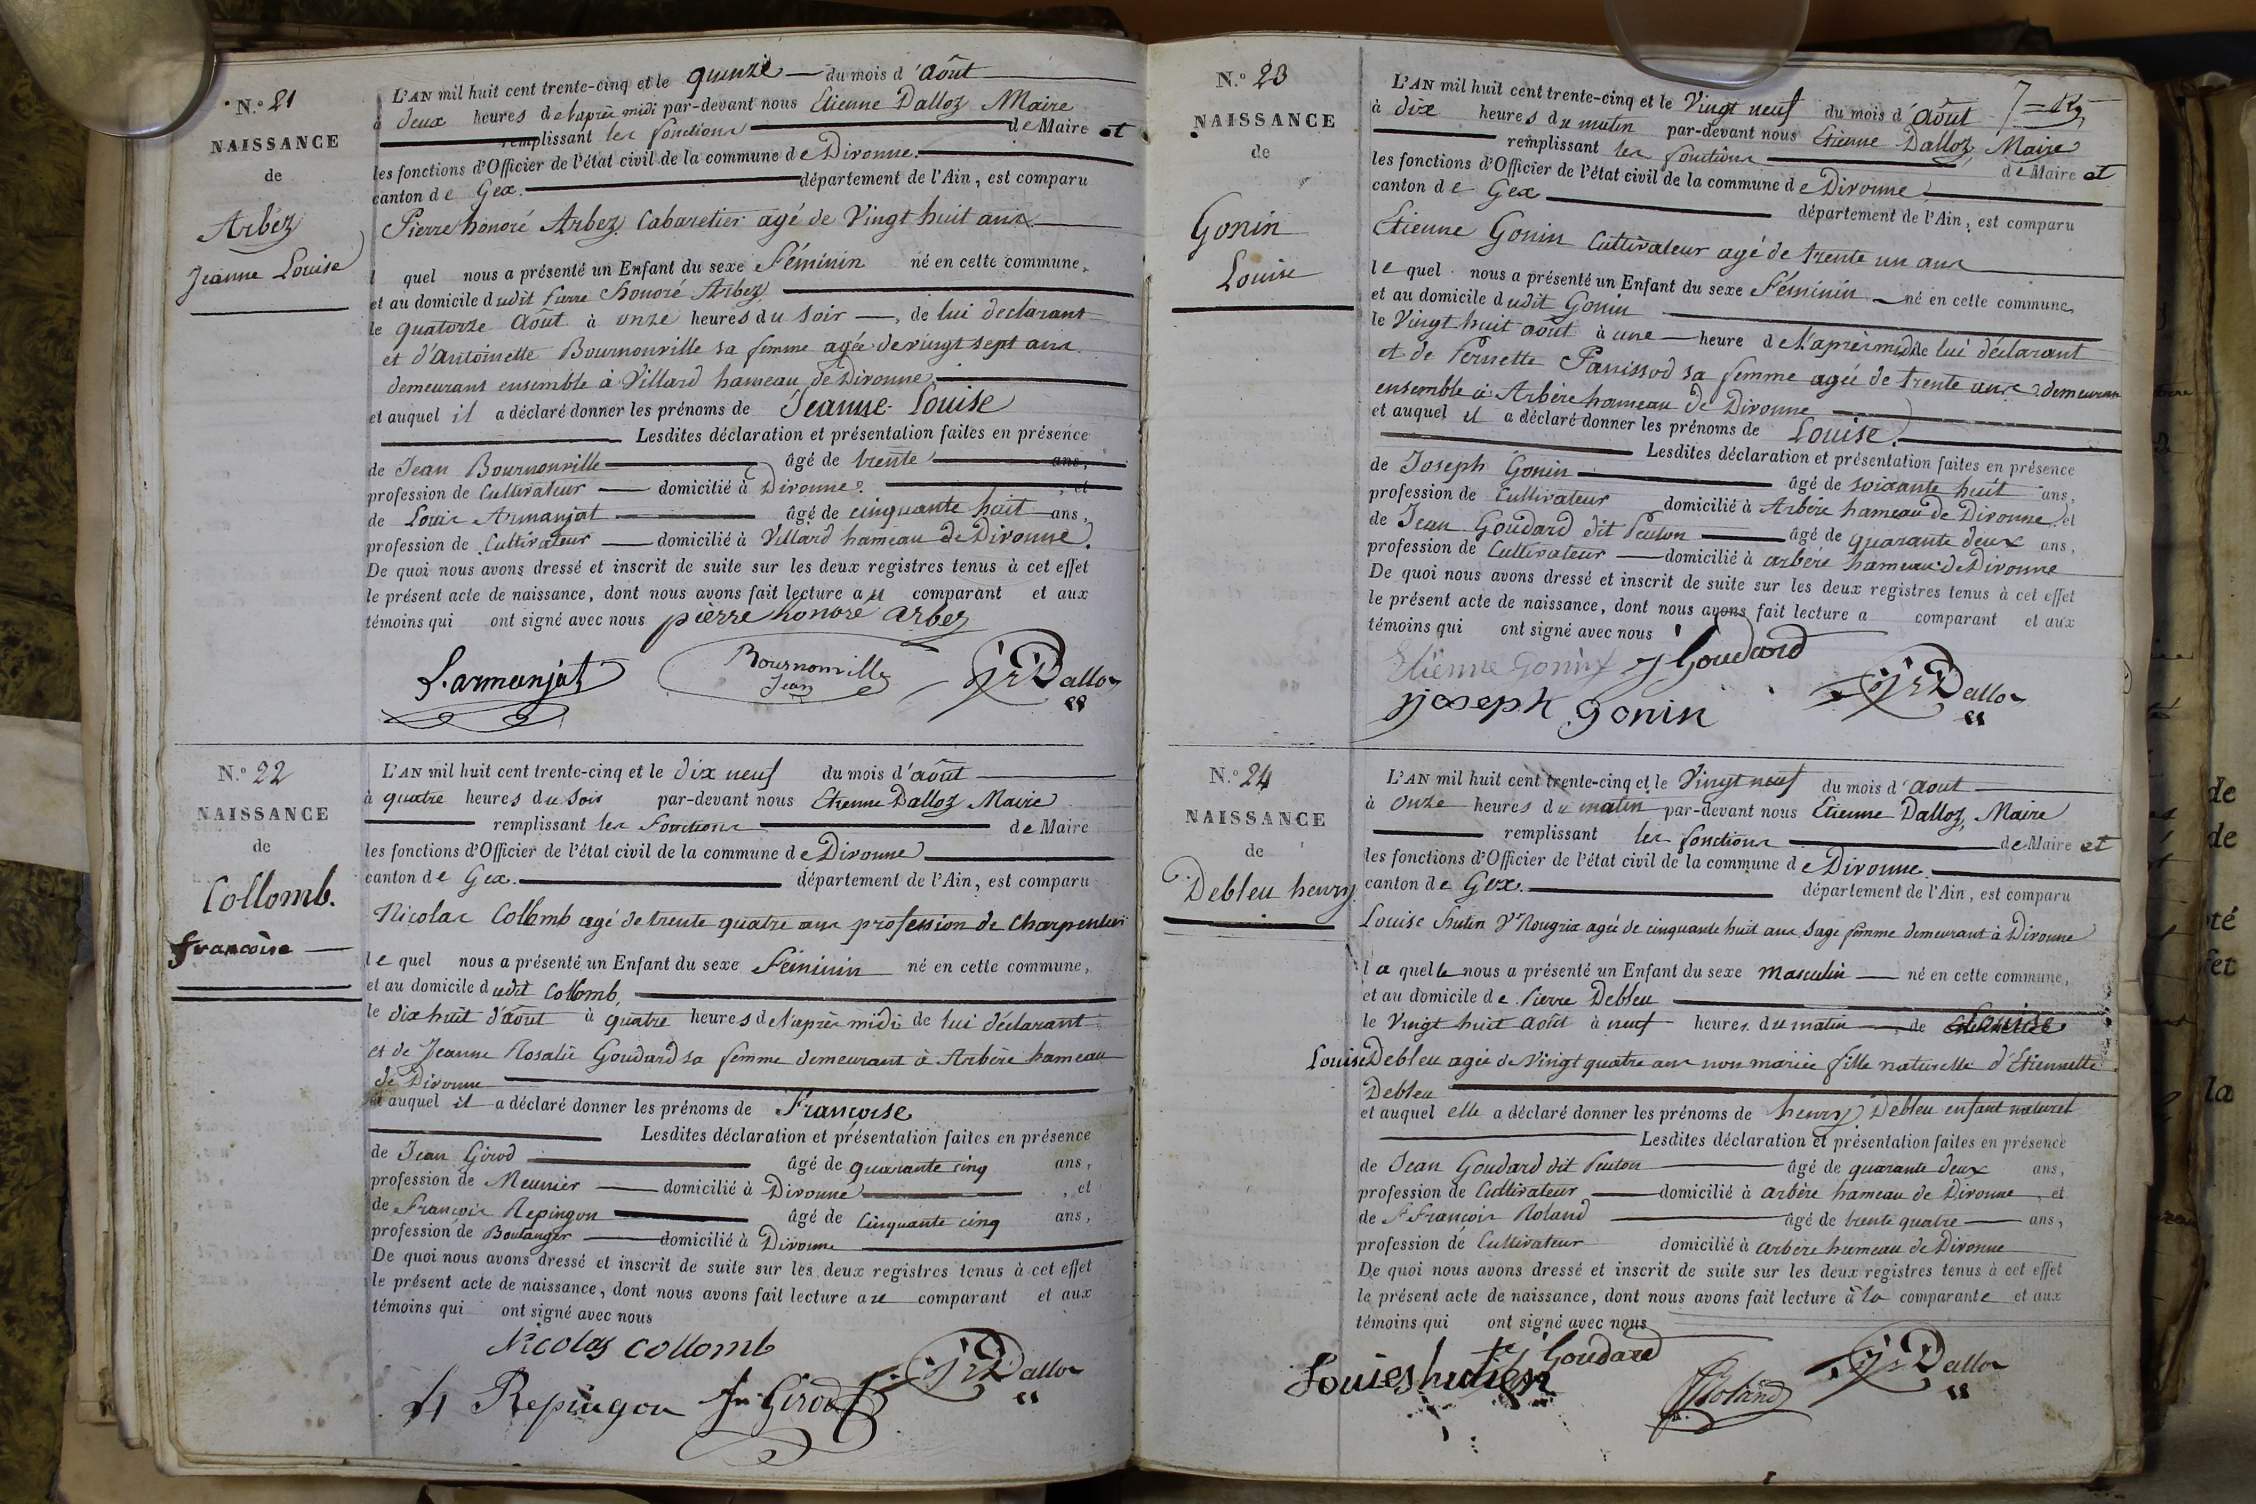 N.° 21
NAISSANCE
de
Arbéz
Jeanne Louise
L'AN mil huit cent trente-cinq et le quinze du mois d'Août
à deux heures de l'après midi par-devant nous Etienne Dalloz Maire
remplissant les fonctions de Maire et
les fonctions d'Officier de l'état civil de la commune de Divonne.
canton de Gex. département de l'Ain, est comparu
Pierre honoré Arbez Cabaretier agé de Vingt huit ans
l quel nous a présenté un Enfant du sexe Féminin né en cette commune,
et au domicile dudit Pierre honoré Arbez
le quatorze Août à onze heures du soir, de lui declarant
et d'Antoinette Bournonville sa femme agée de vingt sept ans
demeurans ensemble à Villard hameau de Divonne
et auquel il a déclaré donner les prénoms de Jeanne-Louise
Lesdites déclaration et présentation faites en présence
de Jean Bournonville âgé de trente ans,
profession de Cultivateur domicilié à Divonne, et
de Louis Armanjat âgé de cinquante huit ans,
profession de Cultivateur domicilié à Villard hameau de Divonne.
De quoi nous avons dressé et inscrit de suite sur les deux registres tenus à cet effet
le présent acte de naissance, dont nous avons fait lecture au comparant et aux
témoins qui ont signé avec nous pièrre honoré arbez
L. armanjat Bournonville Jean Dalloz
N.° 22
NAISSANCE
de
Collomb.
françoise
L'AN mil huit cent trente-cinq et le dix neuf du mois d'août
à quatre heures du soir par-devant nous Etienne Dalloz Maire
remplissant les Fonctions de Maire
les fonctions d'Officier de l'état civil de la commune de Divonne
canton de Gex. département de l'Ain, est comparu
Nicolas Collomb agé de trente quatre ans profession de Charpentier
le quel nous a présenté un Enfant du sexe Féminin né en cette commune,
et au domicile dudit Collomb,
le dix huit d'août à quatre heures de l'après midi de lui déclarant
et de Jeanne Rosalie Goudard sa femme demeurant à Arbère hameau
de Divonne
et auquel il a déclaré donner les prénoms de Françoise
Lesdites déclaration et présentation faites en présence
de Jean Girod âgé de quarante cinq ans,
profession de Meunier domicilié à Divonne, et
de François Repingon âgé de Cinquante cinq ans,
profession de Boulanger domicilié à Divonne
De quoi nous avons dressé et inscrit de suite sur les deux registres tenus à cet effet
le présent acte de naissance, dont nous avons fait lecture au comparant et aux
témoins qui ont signé avec nous
Nicolas collomb
Repingon Girod Dalloz
N.° 23
NAISSANCE
de
Gonin
Louise
L'AN mil huit cent trente-cinq et le Vingt neuf du mois d'Août
à dix heures du matin par-devant nous Etienne Dalloz Maire
remplissant les fonctions de Maire et
les fonctions d'Officier de l'état civil de la commune de Divonne
canton de Gex département de l'Ain, est comparu
Etienne Gonin Cultivateur agé de trente un ans
le quel nous a présenté un Enfant du sexe Féminin né en cette commune,
et au domicile dudit Gonin
le Vingt huit août à une heure de l'après midi de lui déclarant
et de Pernette Panissod sa femme agée de trente ans demeurans
ensemble à Arbère hameau de Divonne
et auquel il a déclaré donner les prénoms de Louise.
Lesdites déclaration et présentation faites en présence
de Joseph Gonin âgé de soixante huit ans,
profession de Cultivateur domicilié à Arbère hameau de Divonne, et
de Jean Goudard dit Peulon âgé de quarante deux ans,
profession de Cultivateur domicilié à arbère hameau de Divonne
De quoi nous avons dressé et inscrit de suite sur les deux registres tenus à cet effet
le présent acte de naissance, dont nous avons fait lecture a comparant et aux
témoins qui ont signé avec nous
Etienne Gonin J Goudard
joseph gonin Dalloz
N.° 24
NAISSANCE
de
Debleu henry
L'AN mil huit cent trente-cinq et le Vingt neuf du mois d'Aout
à onze heures du matin par-devant nous Etienne Dalloz, Maire
remplissant les fonctions de Maire et
les fonctions d'Officier de l'état civil de la commune de Divonne
canton de Gex. département de l'Ain, est comparu
Louise hutin Ve Nougrix agée de cinquante huit ans Sage femme demeurant à Divonne
la quelle nous a présenté un Enfant du sexe masculin né en cette commune,
et au domicile de Pierre Debleu
le Vingt huit Août à neuf heures du matin, de Louise
Louise Debleu agée de Vingt quatre ans non mariée fille naturelle d'Etiennette
Debleu
et auquel elle a déclaré donner les prénoms de henry Debleu enfant naturel
Lesdites déclaration et présentation faites en présence
de Jean Goudard dit Peulon âgé de quarante deux ans,
profession de Cultivateur domicilié à arbère hameau de Divonne, et
de François Roland âgé de trente quatre ans,
profession de Cultivateur domicilié à arbère hameau de Divonne
De quoi nous avons dressé et inscrit de suite sur les deux registres tenus à cet effet
le présent acte de naissance, dont nous avons fait lecture à la comparante et aux
témoins qui ont signé avec nous
J Goudard
Roland Dalloz